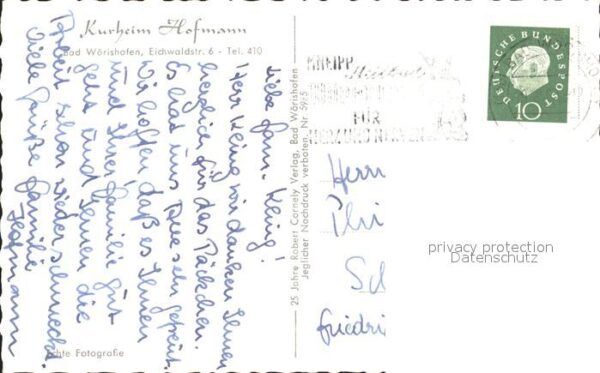 Kurheim Hofmann
Bad Wörishofen, Eichwaldstr. 6 - Tel. 410
Liebe Fam. Kling!
Herr Kling wir danken Ihnen
herzlich für das Päckchen.
Es hat uns sehr gefreut.
Wir hoffen daß es Ihnen
und Ihrer Familie gut
geht und Ihnen die
Arbeit schon wieder schmeckt.
Viele Grüße Familie
Hofmann
Echte Fotografie
25 Jahre Robert Cornely Verlag, Bad Wörishofen
Jeglicher Nachdruck verboten, Nr. 59/5
KNEIPP
FÜR
DEUTSCHE BUNDESPOST
10
Herrn
Phi
Sch
Friedri
privacy protection
Datenschutz